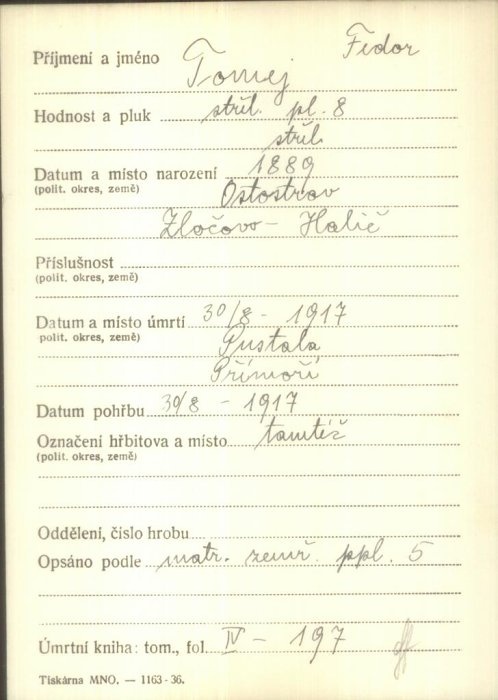 Příjmení a jméno Tomej Fedor
Hodnost a pluk stříl. pl. 8
stříl.
Datum a místo narození 1889
(polit. okres, země) Ostostrov
Zločovo - Halič
Příslušnost
(polit. okres, země)
Datum a místo úmrtí 30/8 - 1917
polit. okres, země) Pustala
Přímoří
Datum pohřbu 30/8 - 1917
Označení hřbitova a místo tamtéž
(polit. okres, země)
Oddělení, číslo hrobu
Opsáno podle matr. zemř. ppl. 5
Úmrtní kniha: tom., fol. IV - 197
Tiskárna MNO. — 1163-36.